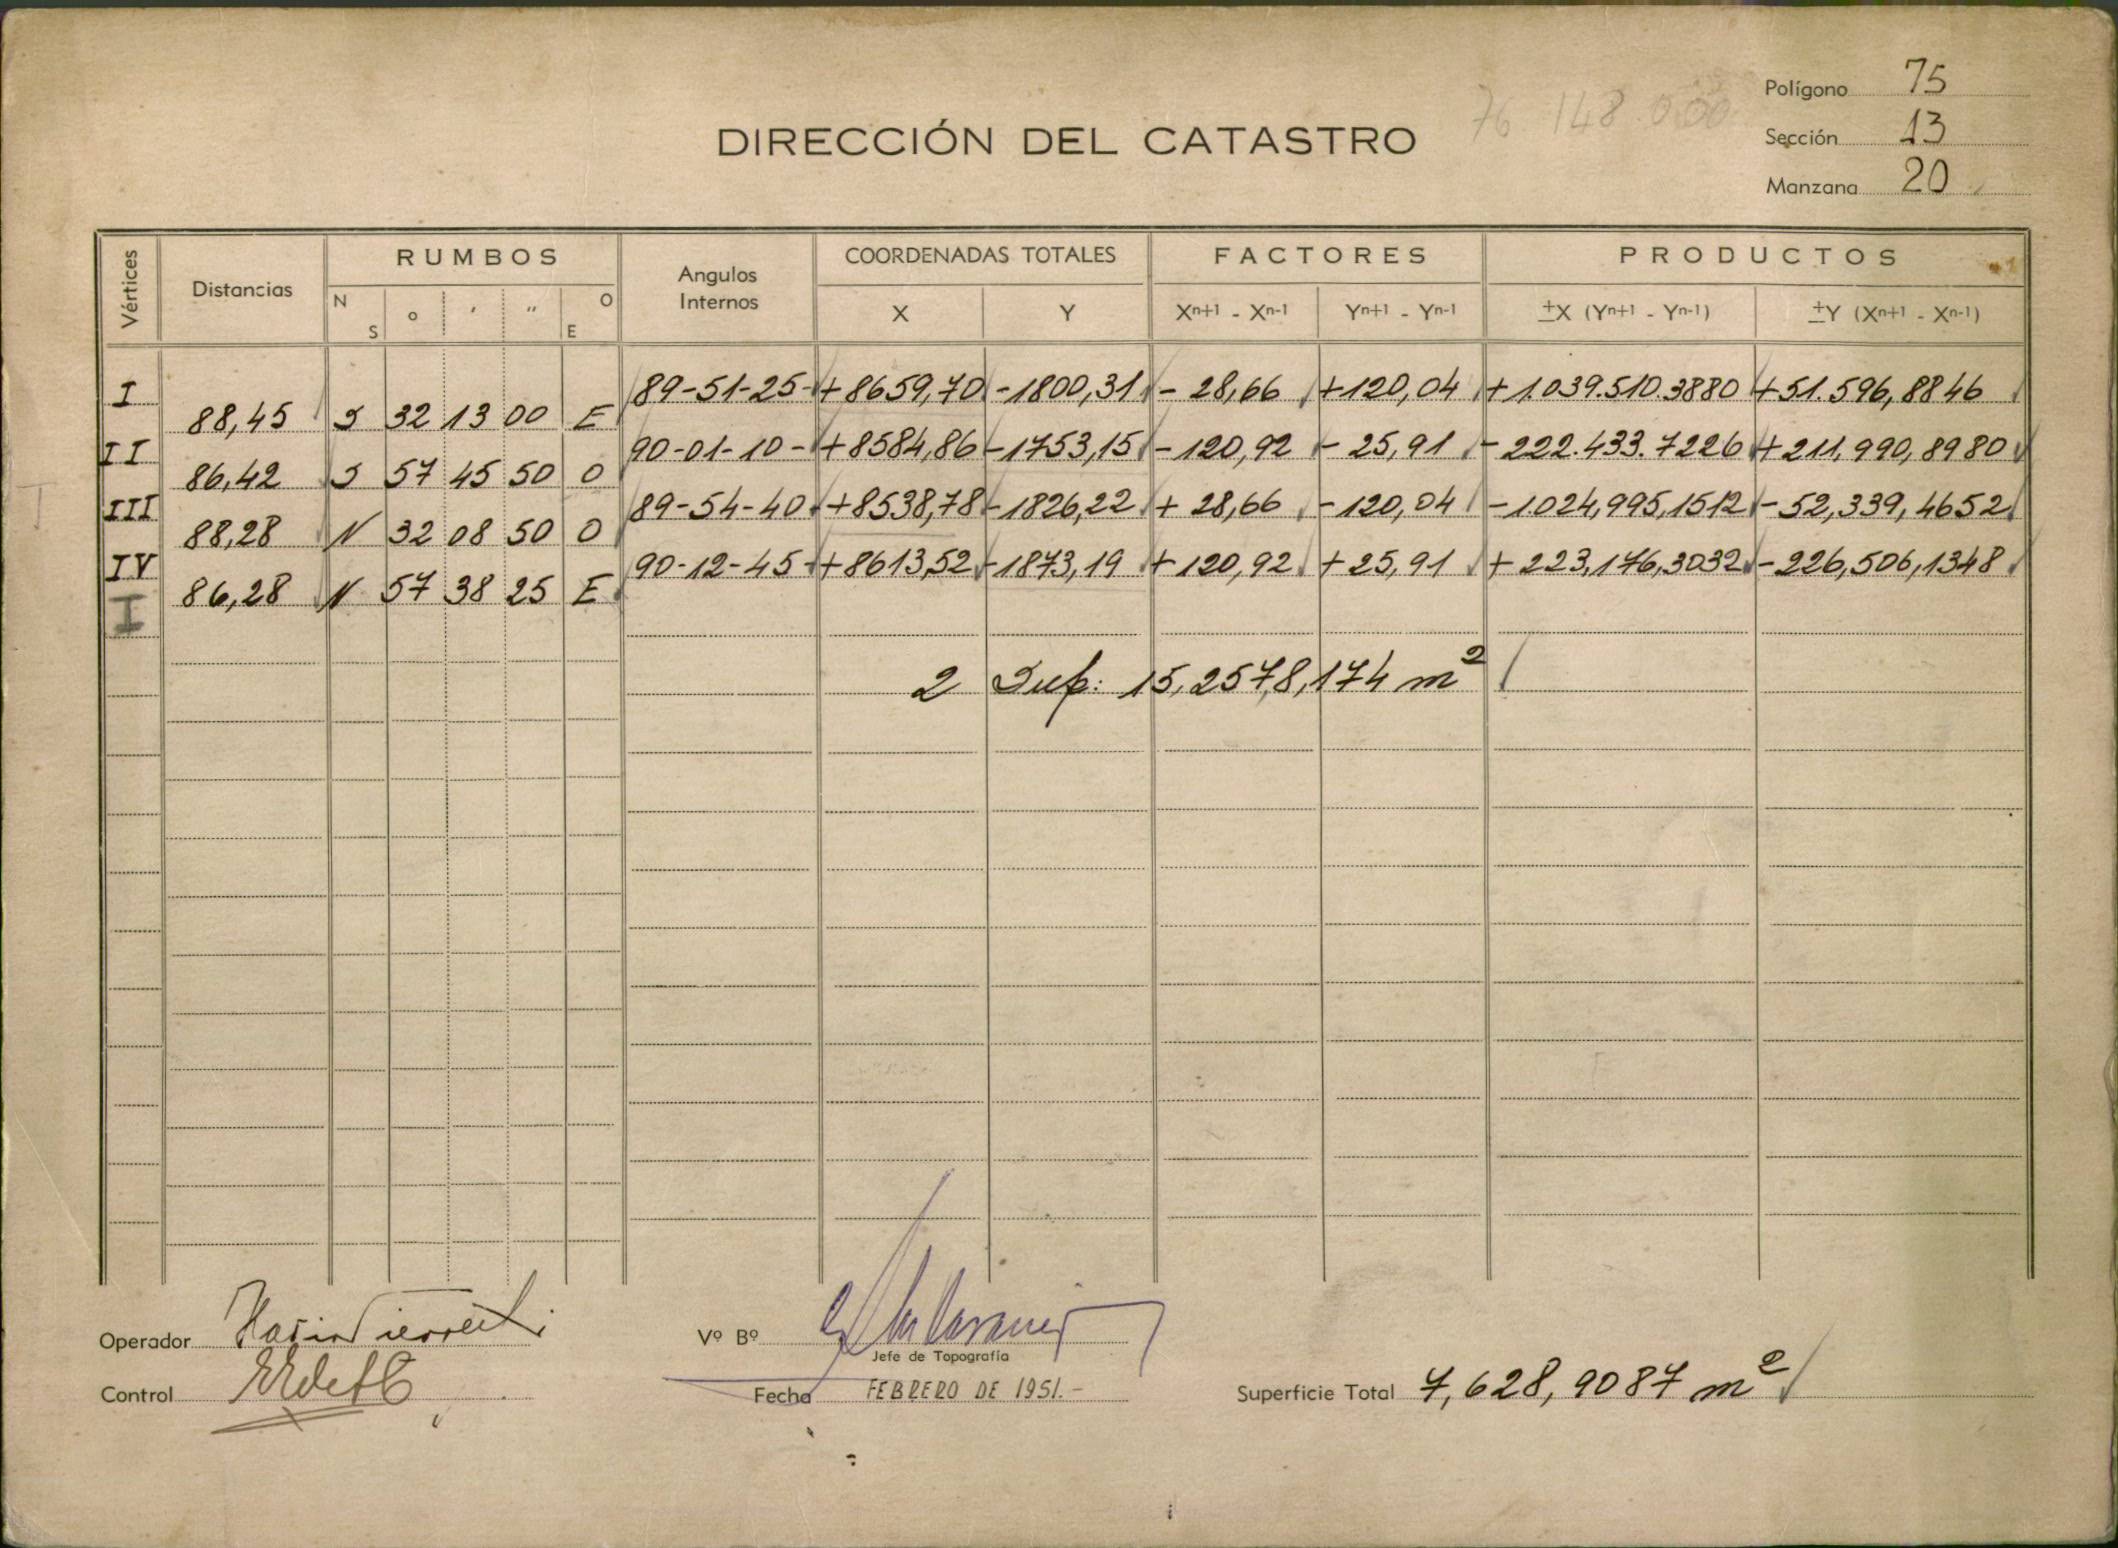 76 148 000
Polígono 75
DIRECCIÓN DEL CATASTRO
Sección 13
Manzana 20
Vértices Distancias RUMBOS Angulos Internos COORDENADAS TOTALES FACTORES PRODUCTOS
N S ° ' " O E X Y Xⁿ⁺¹ - Xⁿ⁻¹ Yⁿ⁺¹ - Yⁿ⁻¹ ±X (Yⁿ⁺¹ - Yⁿ⁻¹) ±Y (Xⁿ⁺¹ - Xⁿ⁻¹)
I 89-51-25- +8659,70 -1800,31 - 28,66 +120,04 +1.039.510.3880 +51.596,8846
88,45 S 32 13 00 E
II 90-01-10- +8584,86 -1753,15 -120,92 - 25,91 - 222.433.7226 +211,990,8980
86,42 S 57 45 50 O
III 89-54-40 +8538,78 -1826,22 + 28,66 -120,04 -1.024,995,1512 -52,339,4652
88,28 N 32 08 50 O
IV 90-12-45- +8613,52 -1873,19 +120,92 +25,91 + 223,176,3032 -226,506,1348
86,28 N 57 38 25 E
I
2 Sup: 15,257,8,174 m²
Operador
Vº Bº
Jefe de Topografía
Control
Fecha FEBRERO DE 1951.-
Superficie Total 7,628,9087 m²